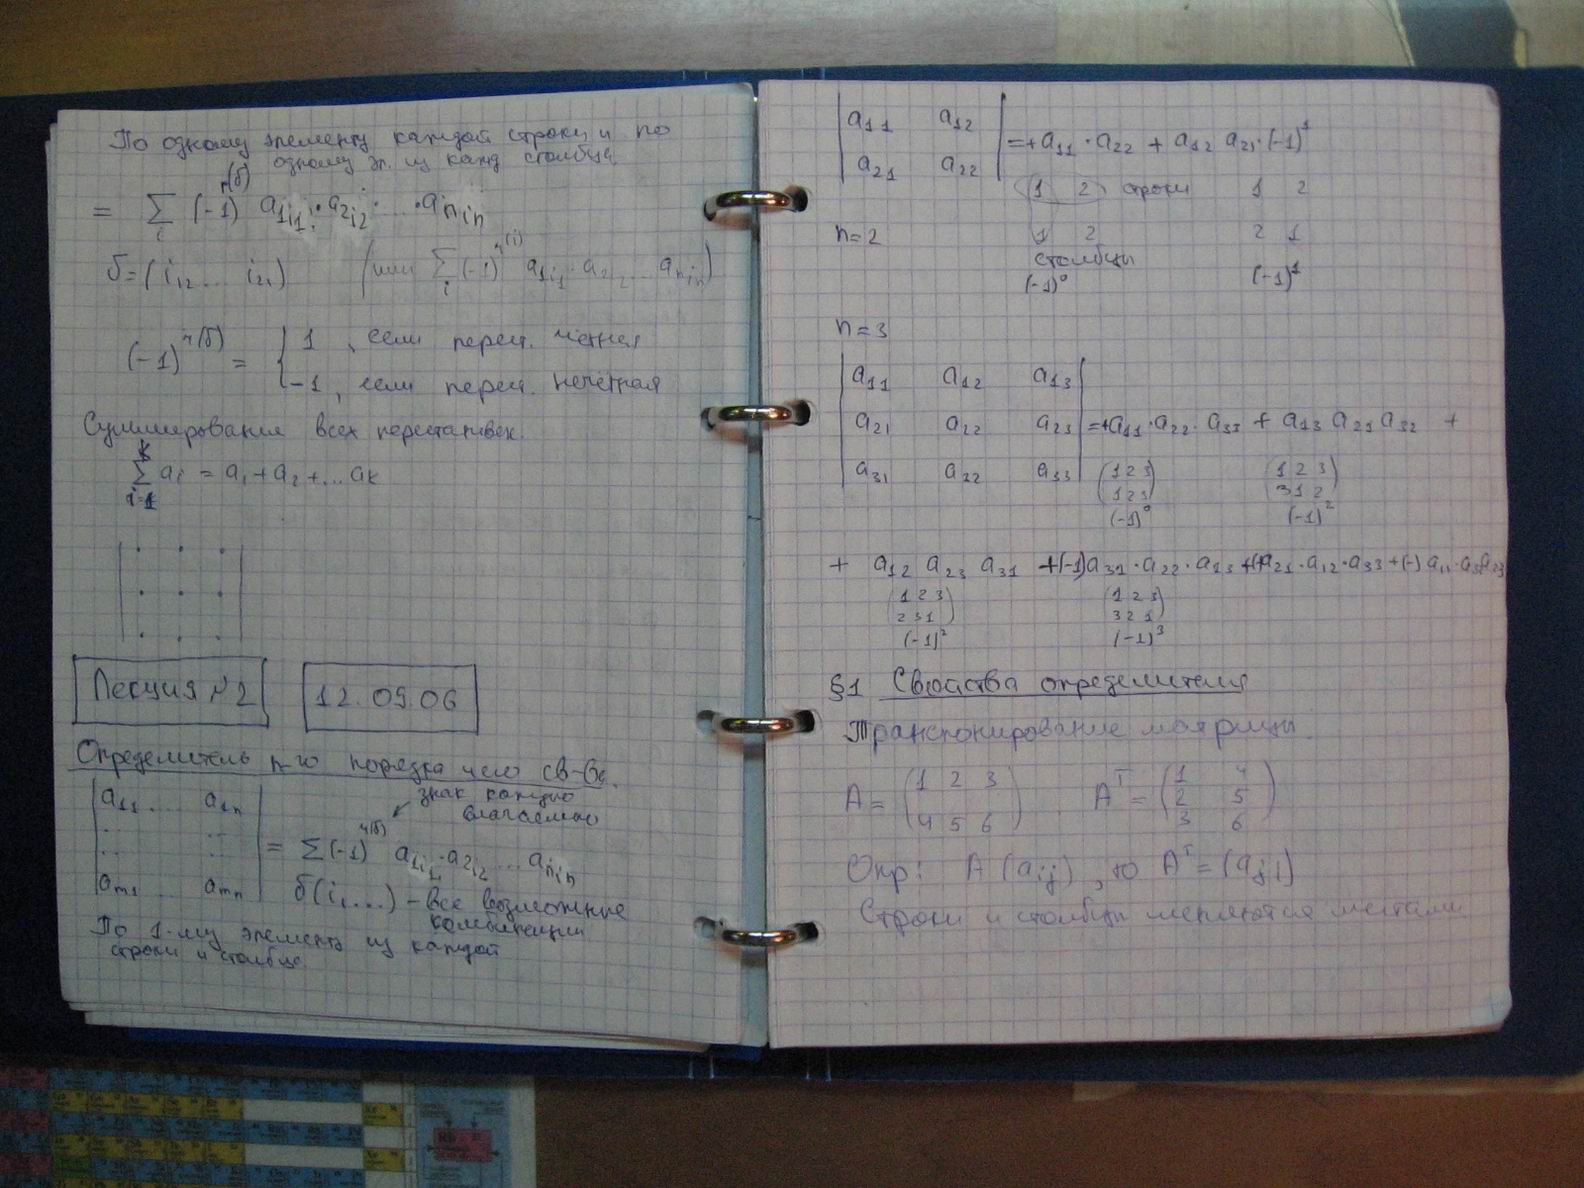 По одному элементу каждой строки и по
одному эл. из кажд столбца
= ∑ᵢ (-1)^r(б) a₁ᵢ₁·a₂ᵢ₂·...·aₙᵢₙ
б=(i₁₂... i₂₁) (или ∑ᵢ (-1)^r(i) a₁ᵢ₁·a₂₂... aₙᵢₙ)
(-1)^r(б) = { 1, если перест. четная
-1, если перест. нечетная
Суммирование всех перестановок.
k
∑ aᵢ = a₁+a₂+...aₖ
i=1
Лекция №2 12.09.06
Определитель n-го порядка
знак каждого
слагаемого
a₁₁ ... a₁ₙ
= ∑(-1)^r(б) a₁ᵢ₁·a₂ᵢ₂...aₙᵢₙ
aₘ₁ ... aₘₙ б(i₁...) - все возможные
комбинации
По 1-му элементу из каждой
строки и столбца
a₁₁ a₁₂
a₂₁ a₂₂ =+a₁₁·a₂₂ + a₁₂ a₂₁·(-1)¹
1 2 строки 1 2
n=2 1 2 2 1
столбцы
(-1)⁰ (-1)¹
n=3
a₁₁ a₁₂ a₁₃
a₂₁ a₂₂ a₂₃ =+a₁₁·a₂₂·a₃₃ + a₁₃ a₂₁ a₃₂ +
a₃₁ a₃₂ a₃₃ (1 2 3) (1 2 3)
(1 2 3) (3 1 2)
(-1)⁰ (-1)²
+ a₁₂ a₂₃ a₃₁ +(-1)a₃₁·a₂₂·a₁₃ +(-)a₂₁·a₁₂·a₃₃+(-)a₁₁·a₃₂a₂₃
(1 2 3) (1 2 3)
2 3 1 3 2 1
(-1)² (-1)³
§1 Свойства определителя
Транспонирование матрицы.
A = (1 2 3 Aᵀ = (1 4
2 5
4 5 6) 3 6)
Опр: A (aᵢⱼ), то Aᵀ = (aⱼᵢ)
Строки и столбцы меняются местами